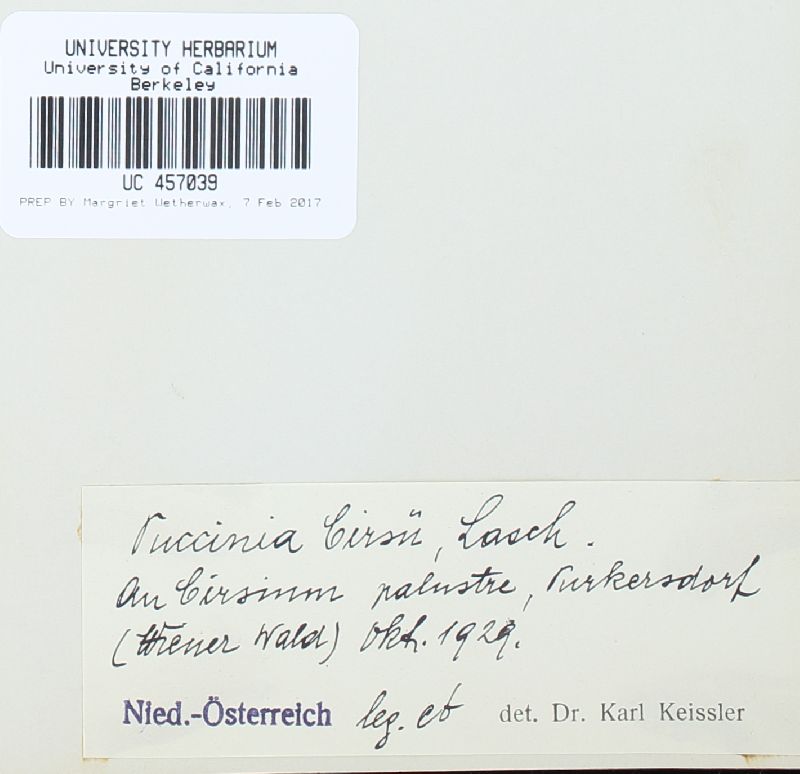 UNIVERSITY HERBARIUM
University of California
Berkeley
UC 457039
PREP BY Margriet Wetherwax, 7 Feb 2017
Puccinia Cirsii, Lasch.
An Cirsium palustre, Purkersdorf
(Wiener Wald) Okt. 1929.
Nied.-Österreich leg. et det. Dr. Karl Keissler